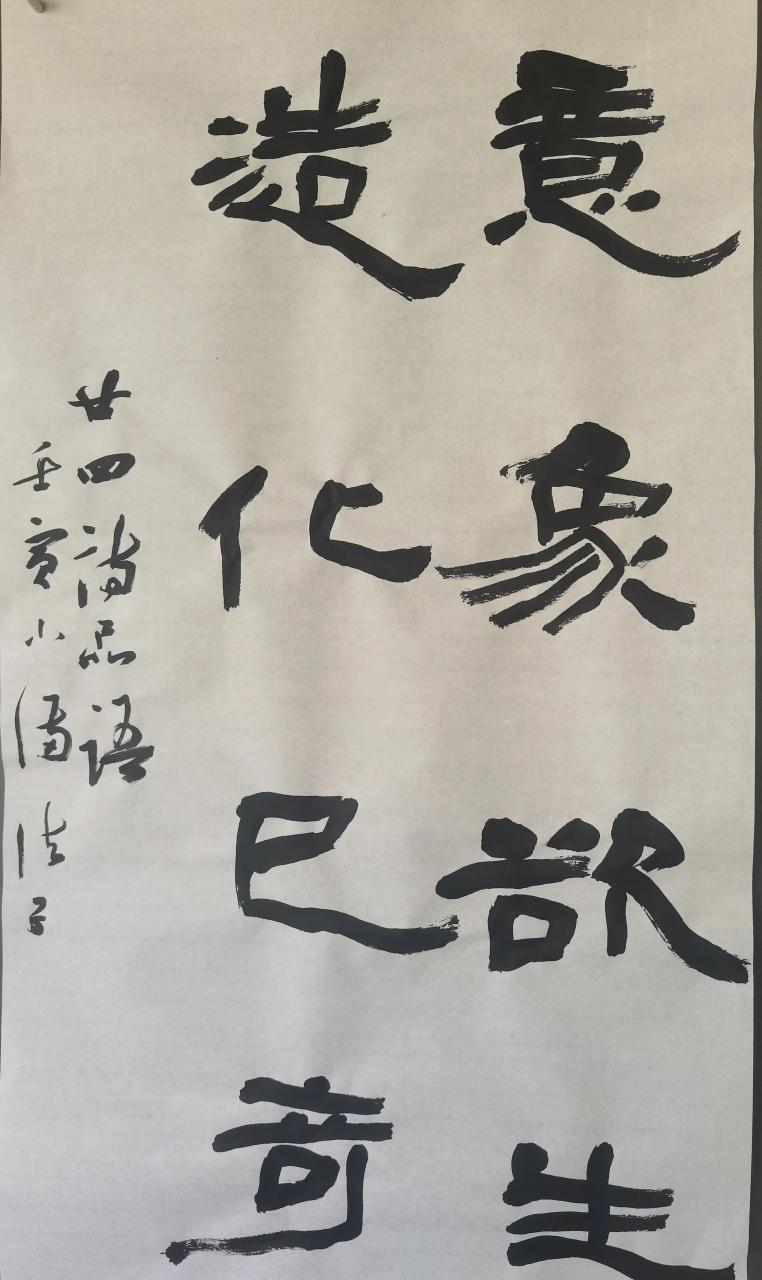 意象欲生
造化已奇
廿四诗品语
壬寅小满